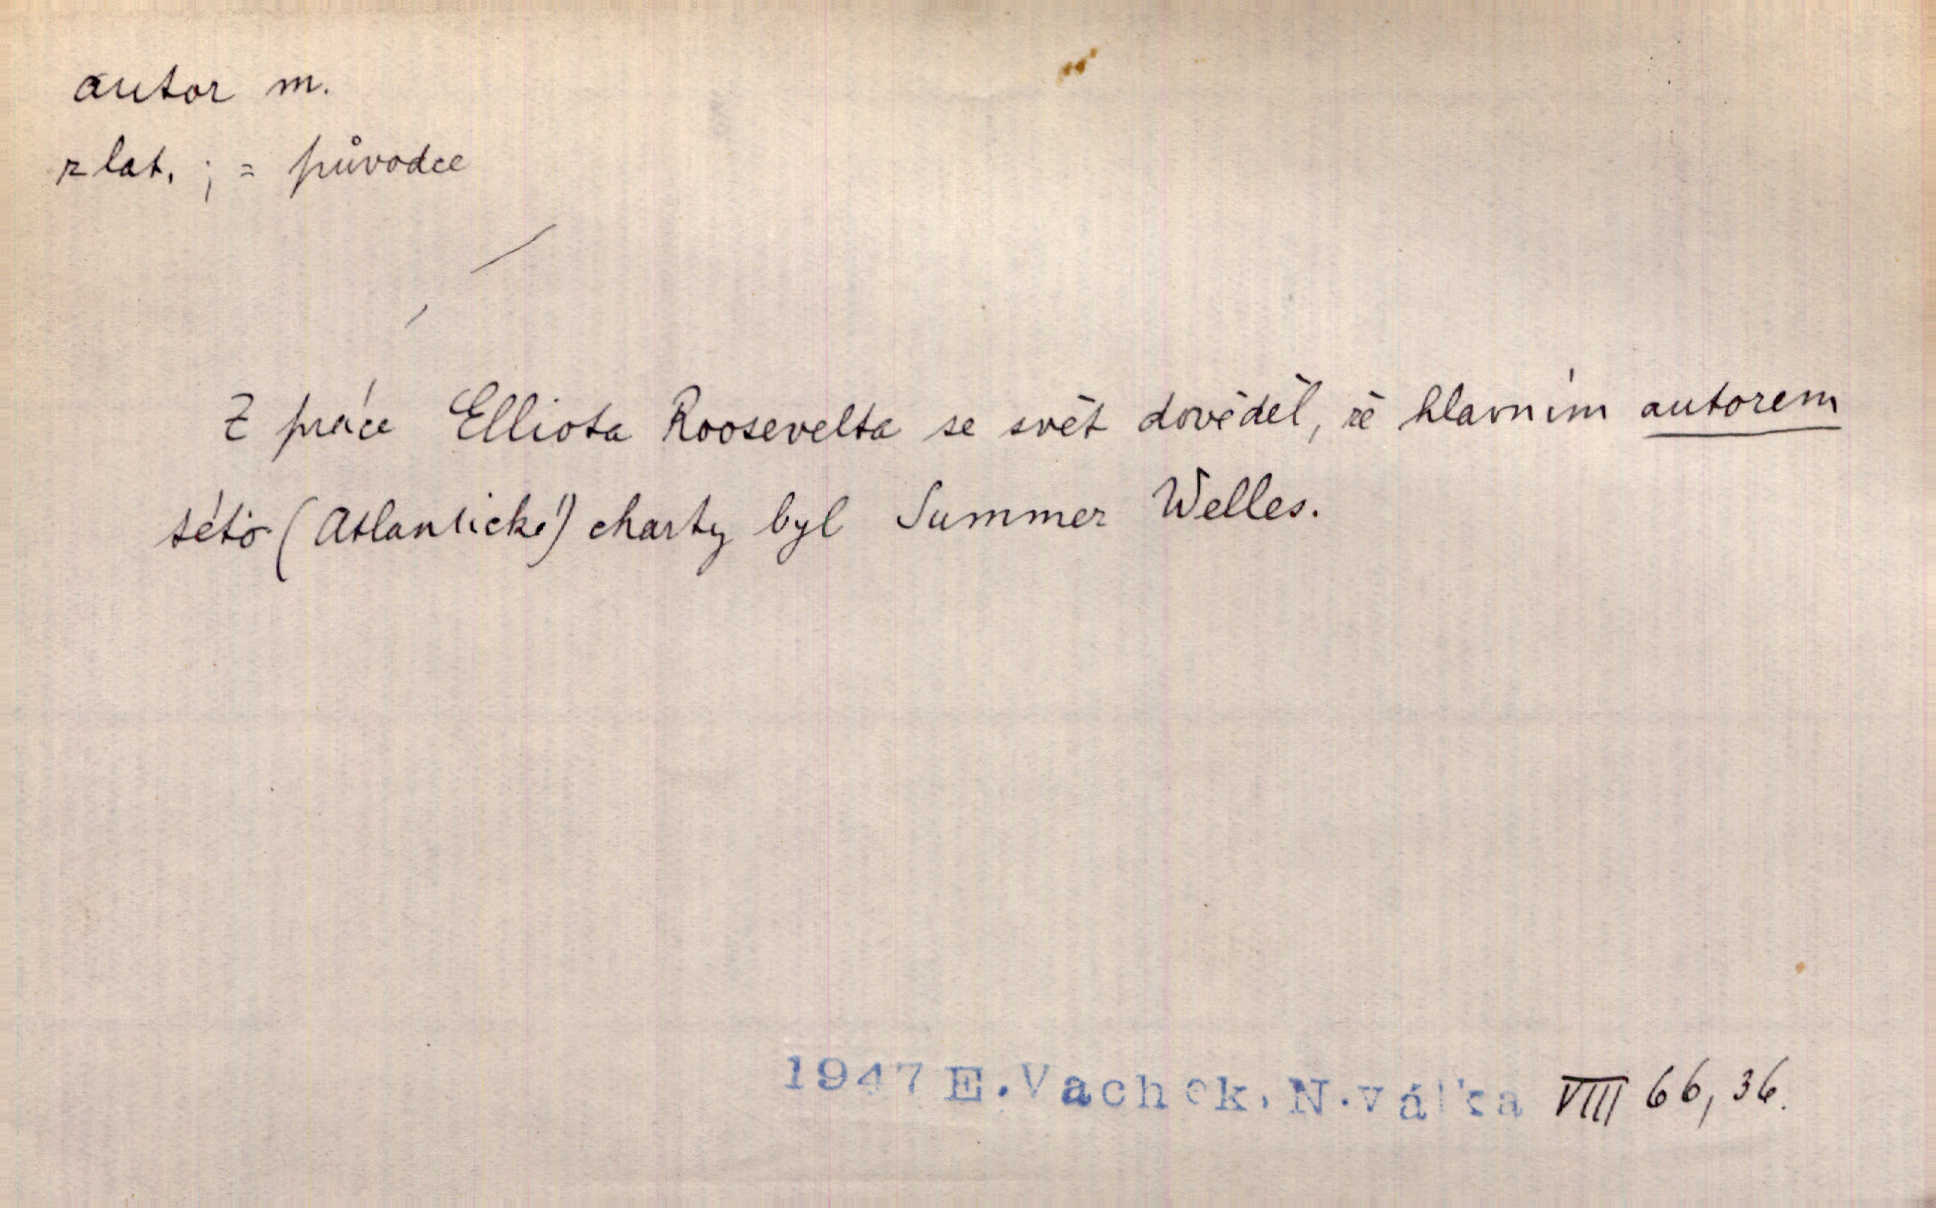 autor m.
z lat. ; = původce
Z práce Elliota Roosevelta se svět dověděl, že hlavním autorem
této (Atlantické) charty byl Summer Welles.
1947 E.Vachek, N.válka VIII 66, 36.